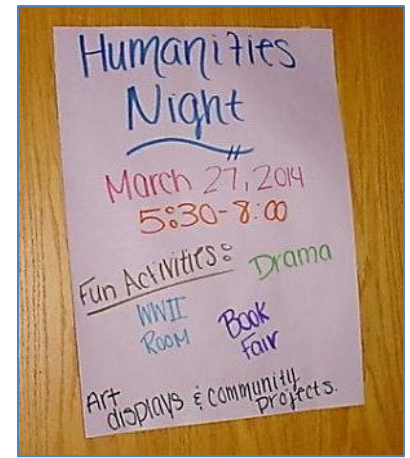 Humanities
Night
March 27, 2014
5:30-8:00
Fun Activities: Drama
WWII
Room
Book
Fair
Art
displays & community
projects.